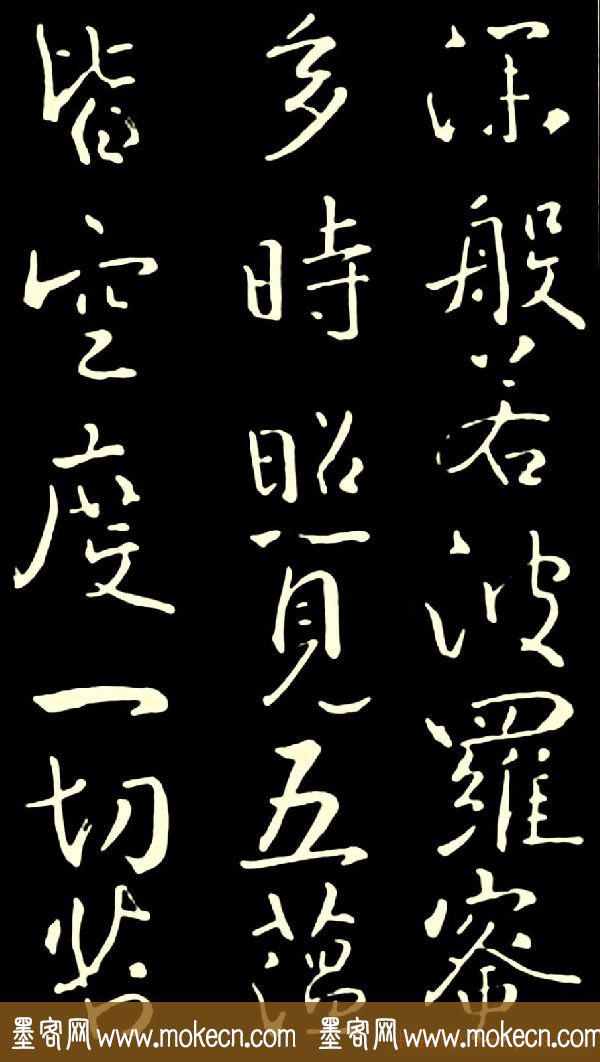 深般若波羅蜜
多時照見五蘊
皆空度一切苦
墨客网 www.mokecn.com 墨客网 www.mokecn.com